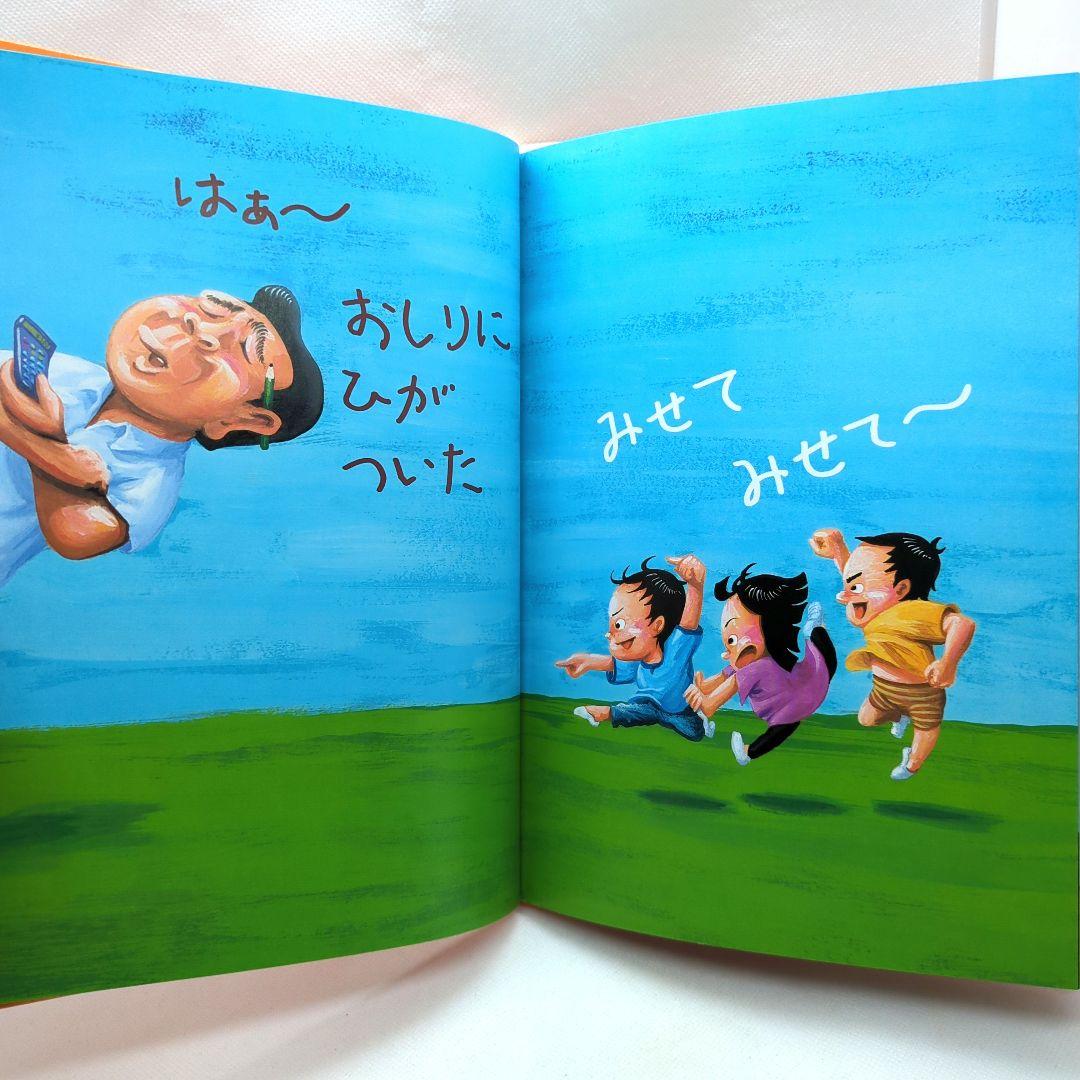 はぁ〜
おしりに
ひが
ついた
みせて
みせて〜